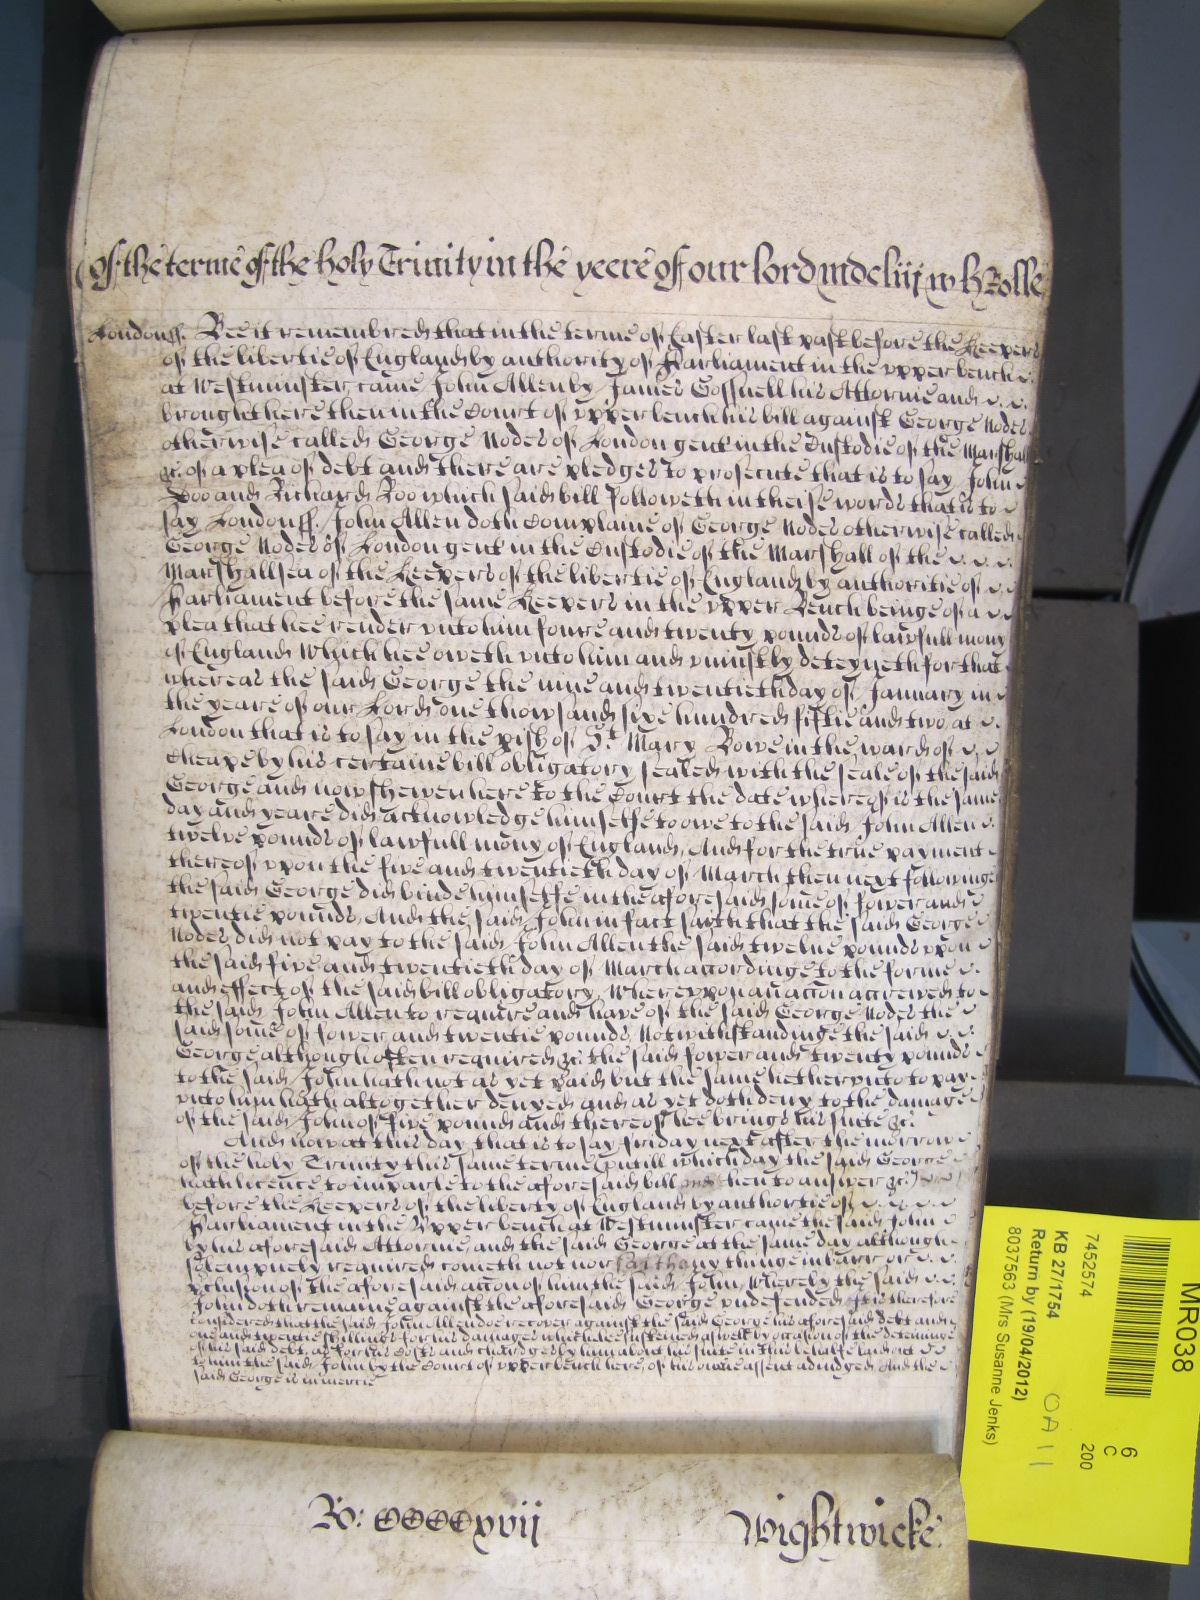 of the terme of the holy Trinity in the yeere of our lord mdcliij wh Rolle
London ss. Bee it remembred that in the terme of Easter last past before the Keepers
of the libertie of England by authority of Parliament in the vpper bench
at Westminster came John Allen by James Gosnell his Attorme and
brought here then in the Court of vpper bench his bill against George Nodes
otherwise called George Nodes of London gent in the Custodie of the Marshall
&c. of a plea of debt and there are pledges to prosecute that is to say John
Doo and Richard Roo which said bill followeth in theise words that is to
say London ss. John Allen doth Complaine of George Nodes otherwise called
George Nodes of London gent in the Custodie of the Marshall of the
Marshallsea of the Keepers of the libertie of England by authoritie of
Parliament before the same Keepers in the vpper Bench beinge of a
plea that hee render vnto him foure and twenty pounds of lawfull mony
of England Which hee oweth vnto him and vniustly deteyneth for that
whereas the said George the nine and twentieth day of January in
the yeare of our Lord one thowsand sixe hundred fiftie and two at
London that is to say in the pish of St. Mary Bowe in the ward of
Cheape by his certaine bill obligatory sealed with the seale of the said
George and now shewen here to the Court the date whereof is the same
day and yeare did acknowledge himselfe to owe to the said John Allen
twelve pounds of lawfull mony of England, And for the true payment
thereof vpon the five and twentieth day of March then next followinge
the said George did binde himselfe in the aforesaid some of fower and
twentie pounds, And the said John in fact saith that the said George
Nodes did not pay to the said John Allen the said twelue pounds vpon
the said five and twentieth day of March accordinge to the forme
and effect of the said bill obligatory, Wherevpon an accon accrewed to
the said John Allen to require and have of the said George Nodes the
said some of fower and twentie pounds Notwithstandinge the said
George although often required &c. the said fower and twenty pounds
to the said John hath not as yet paid but the same hetherunto to pay
vnto him hath altogether denyed and as yet doth deny to the damage
of the said John of five pounds and thereof hee brings his suite &c.
And now at this day that is to say friday next after the morrow
of the holy Trinity this same terme (vntill which day the said George
hath licence to imparle to the aforesaid bill and then to answer &c.)
before the Keepers of the liberty of England by authoritie of
Parliament in the Vpper bench at Westminster came the said John
by his aforesaid Attorme, and the said George at the same day although
solempnely required cometh not nor saith any thinge in barr or
preclusion of the aforesaid accon of him the said John, Whereby the said
John doth remaine against the aforesaid George vndefended It is therefore
considered that the said John Allen doe recover against the said George his aforesaid debt and
one and twentie shillings for his damages which hee susteined aswell by occasion of the deteininge
of his said debt, as for his Costs and chardges by him about his suite in this behalfe laid out
to him the said John by the Court of vpper bench here, of his owne assent adiudged And the
said George is in mercie
Ro: CCCCxvij
Wightwicke.
MR038
6
C
200
7452574
KB 27/1754
Return by (19/04/2012)
8037563 (Mrs Susanne Jenks)
OA 11